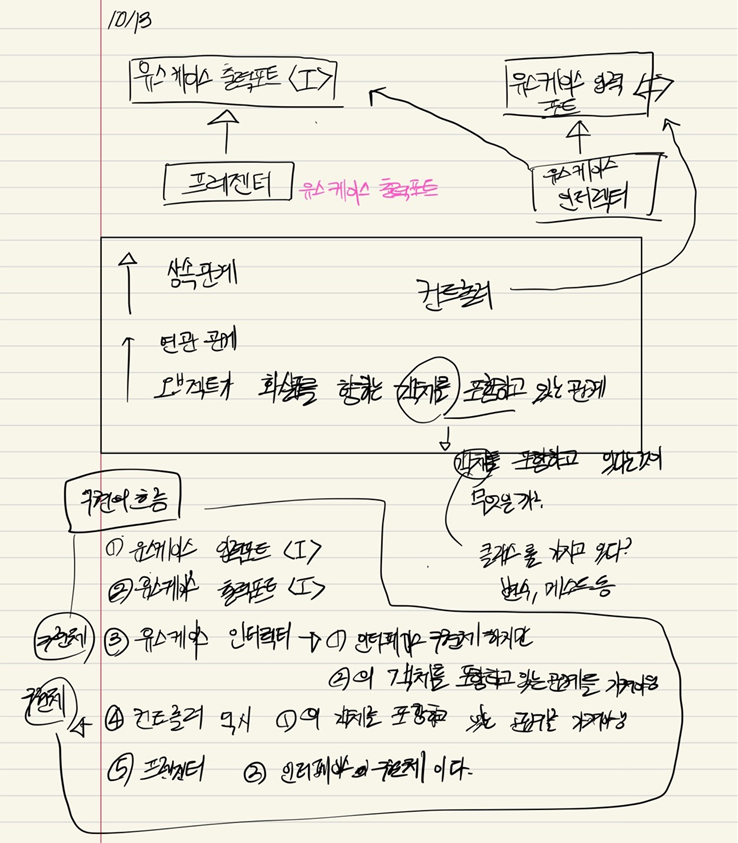 10/13
유스케이스 출력포트 <I>
유스케이스 입력
포트 <I>
프레젠터
유스케이스 출력포트
유스케이스
인터렉터
상속관계
컨트롤러
연관 관계
오브젝트가 화살표를 향하는 객체를 포함하고 있는 관계
객체를 포함하고 있다는것이
무엇일까?
클래스를 가지고 있다?
변수, 메스드 등
구현의 흐름
① 유스케이스 입력포트 <I>
② 유스케이스 출력포트 <I>
구현체
③ 유스케이스 인터렉터 → ① 인터페이스 구현체 하지만
②의 객체를 포함하고 있는 관계를 가져야함
구현체
④ 컨트롤러 역시 ①의 객체를 포함하고 있는 관계를 가져야함
⑤ 프레젠터 ② 인터페이스의 구현체 이다.